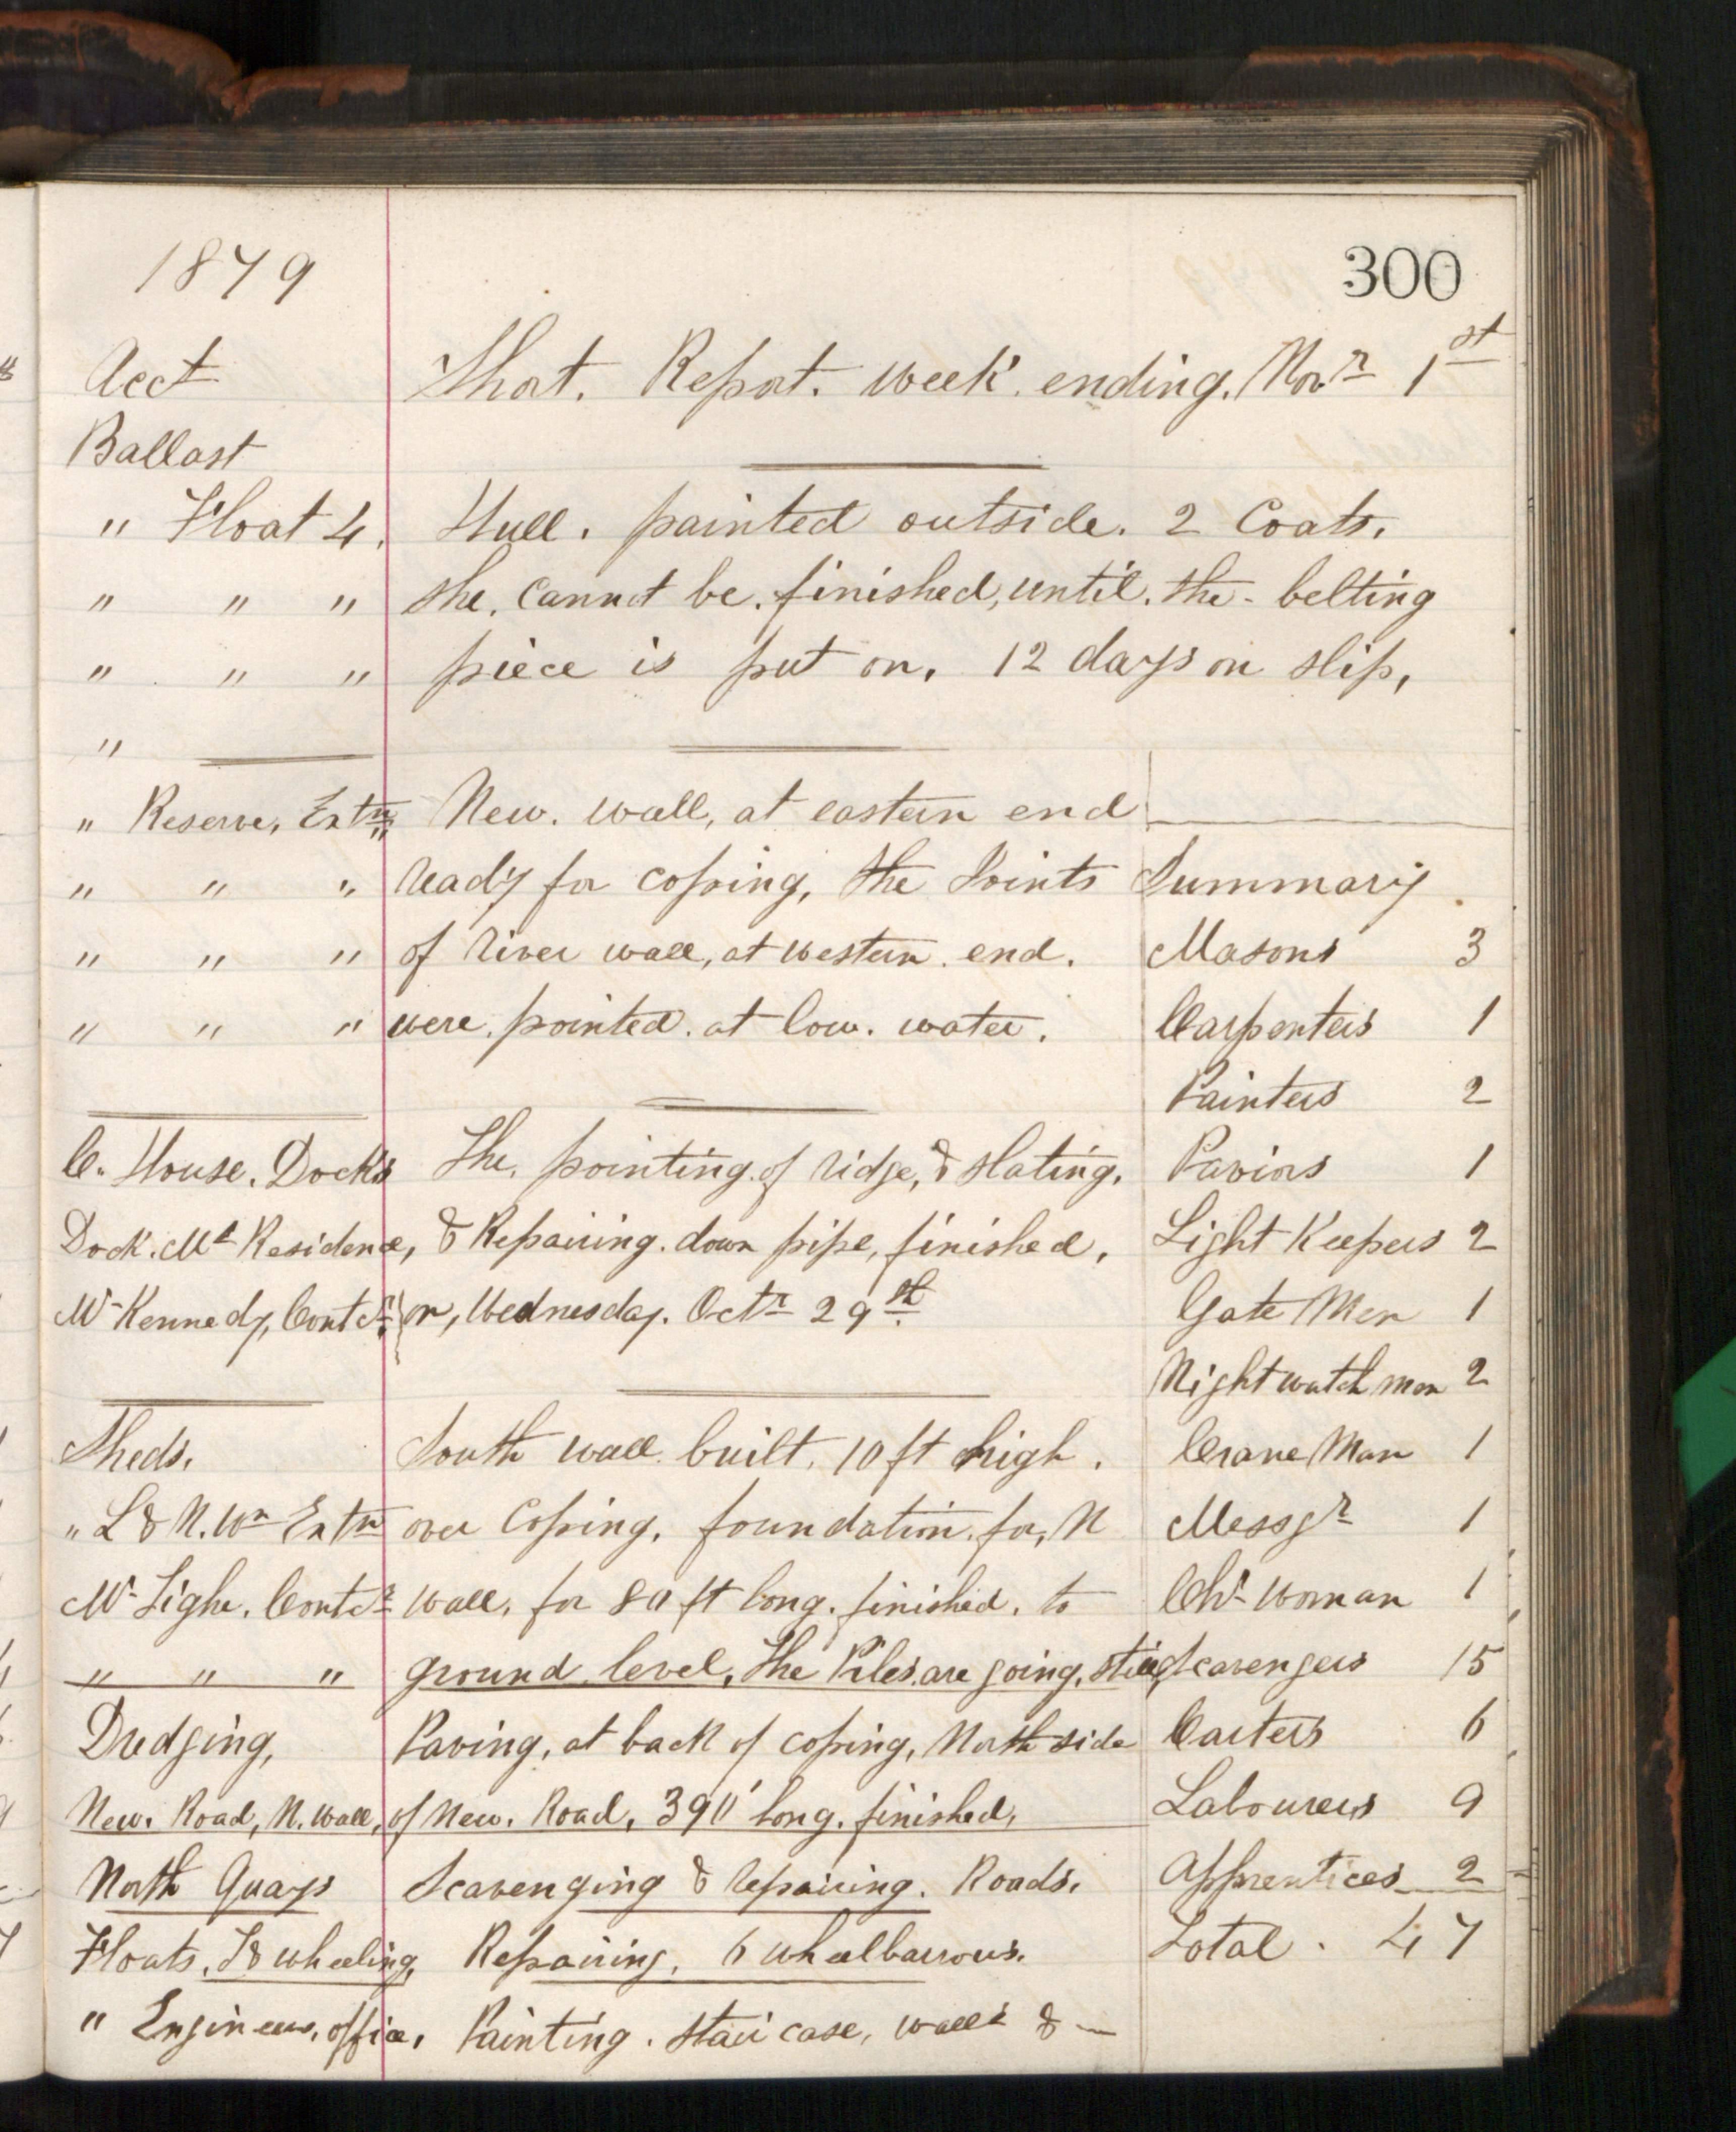 1879
300
Acct
Short. Report. week. ending. Novr 1st
Ballast
" Float 4. Hull. painted outside. 2 Coats.
" " " she. cannot be. finished, until. the belting
" " " piece is put on. 12 days on slip,
"
" Reserve, Extn New. wall, at eastern end
" " " ready for coping, the Joints
" " " of River wall, at western. end.
" " " were. pointed. at low. water.
C. House. Docks The, pointing of ridge, & slating.
Dock. Mr Residence, & Repairing. down pipe, finished,
Mr Kennedy, Contr on, Wednesday. Octr 29th
Sheds. South wall. built. 10 ft high.
" L & N. Wn Extn over Coping. foundation. for, N
Mr Tighe. Contr wall, for 80 ft long. finished. to
" " " ground level, the Piles are going, still
Dredging, Paving, at back of coping, North side
New. Road, N. Wall, of New. Road, 390' long. finished,
North Quays Scavenging & repairing. Roads.
Floats, & wheeling, Repairing, 6 wheelbarrows.
" Engineers, office, Painting. stair case, walls & —
Summary
Masons 3
Carpenters 1
Painters 2
Paviors 1
Light Keepers 2
Gate Men 1
Night watch men 2
Crane Man 1
Messgr 1
Chr Woman 1
Scavengers 15
Carters 6
Labourers 9
Apprentices 2
Total. 47